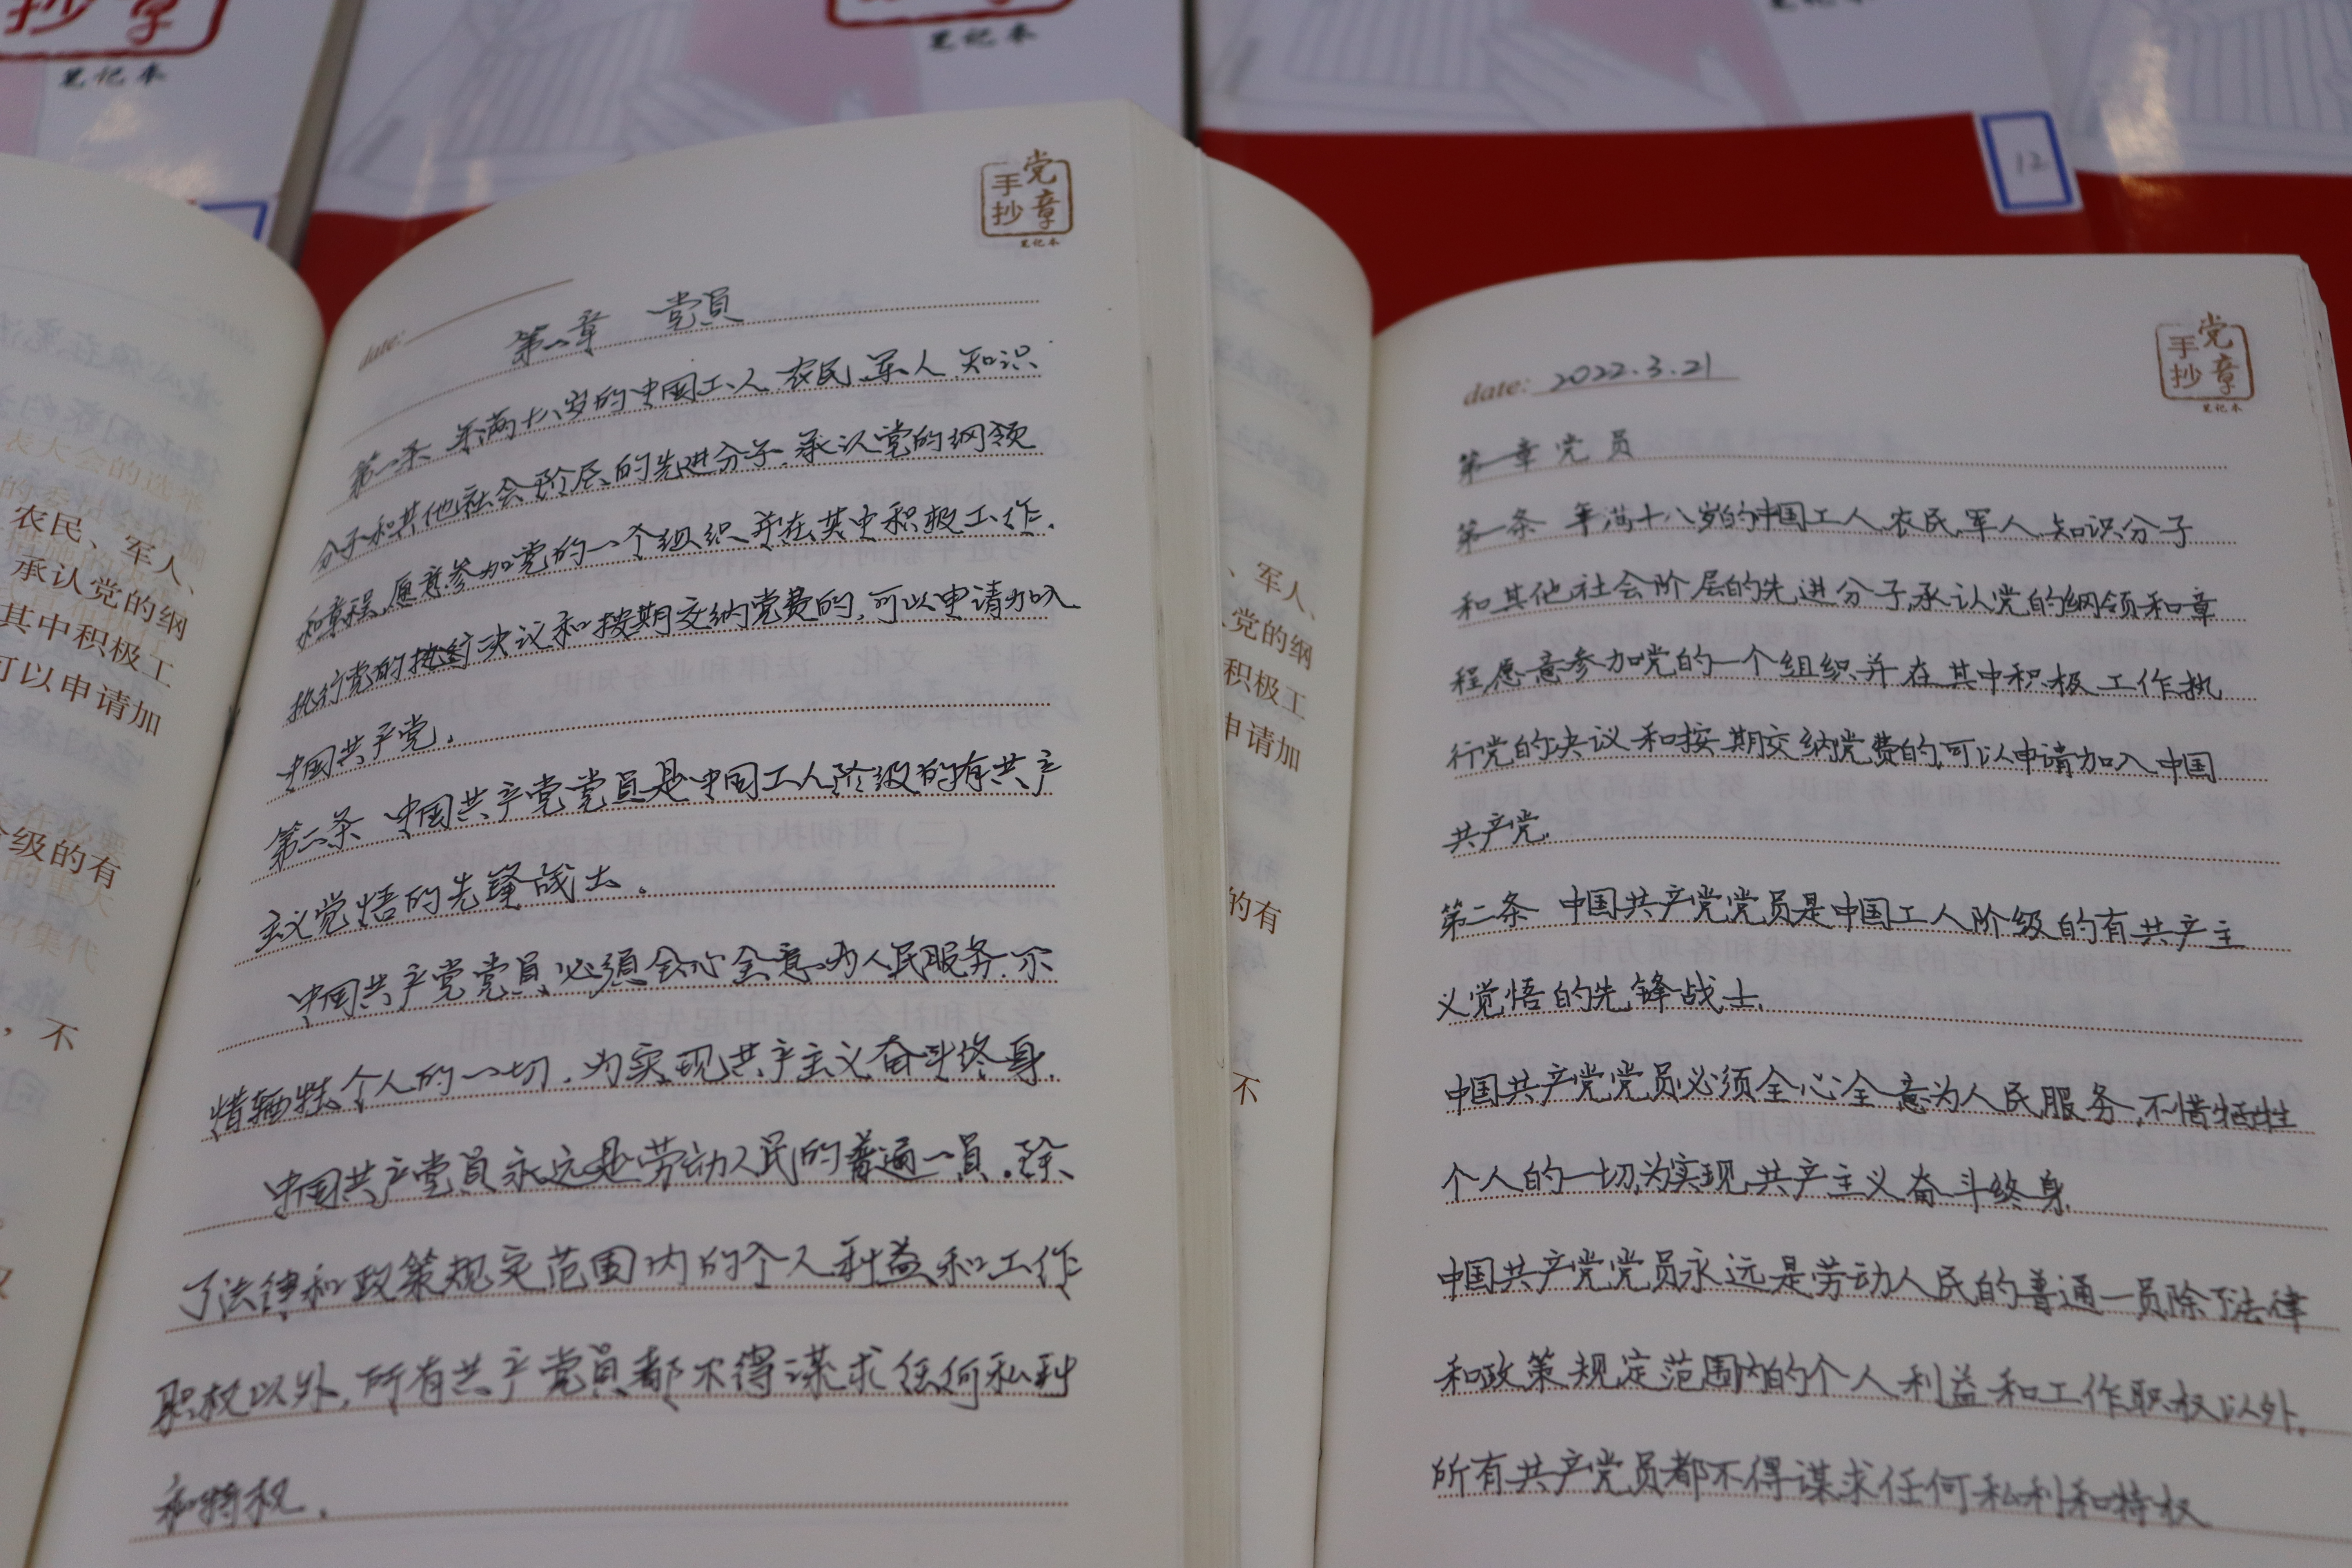 抄章
笔记本
笔记本
笔记本
12
农民、军人、
承认党的纲
其中积极工
可以申请加
级的有
，不
手党
抄章
笔记本
date:
第一章 党员
第一条 年满十八岁的中国工人、农民、军人、知识
分子和其他社会阶层的先进分子，承认党的纲领
和章程，愿意参加党的一个组织并在其中积极工作，
执行党的决议和按期交纳党费的，可以申请加入
中国共产党。
第二条 中国共产党党员是中国工人阶级的有共产
主义觉悟的先锋战士。
中国共产党党员必须全心全意为人民服务，不
惜牺牲个人的一切，为实现共产主义奋斗终身。
中国共产党员永远是劳动人民的普通一员。除
了法律和政策规定范围内的个人利益和工作
职权以外，所有共产党员都不得谋求任何私利
和特权。
、军人、
党的纲
积极工
申请加
的有
不
手党
抄章
笔记本
date: 2022.3.21
第一章 党员
第一条 年满十八岁的中国工人、农民、军人、知识分子
和其他社会阶层的先进分子，承认党的纲领和章
程，愿意参加党的一个组织并在其中积极工作、执
行党的决议和按期交纳党费的，可以申请加入中国
共产党。
第二条 中国共产党党员是中国工人阶级的有共产主
义觉悟的先锋战士.
中国共产党党员必须全心全意为人民服务，不惜牺牲
个人的一切，为实现共产主义奋斗终身.
中国共产党党员永远是劳动人民的普通一员除了法律
和政策规定范围内的个人利益和工作职权以外，
所有共产党员都不得谋求任何私利和特权